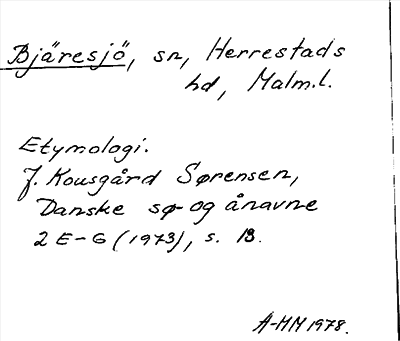 Bjäresjö, sn, Herrestads
hd, Malm.l.
Etymologi.
J. Kousgård Sørensen,
Danske sø- og ånavne
2 E-G (1973), s. 13.
A-MM 1978.